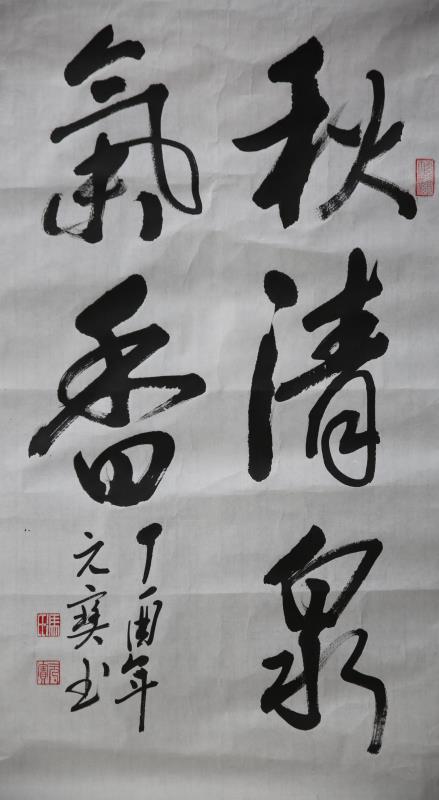 秋清泉
氣香
丁酉年
元寳书